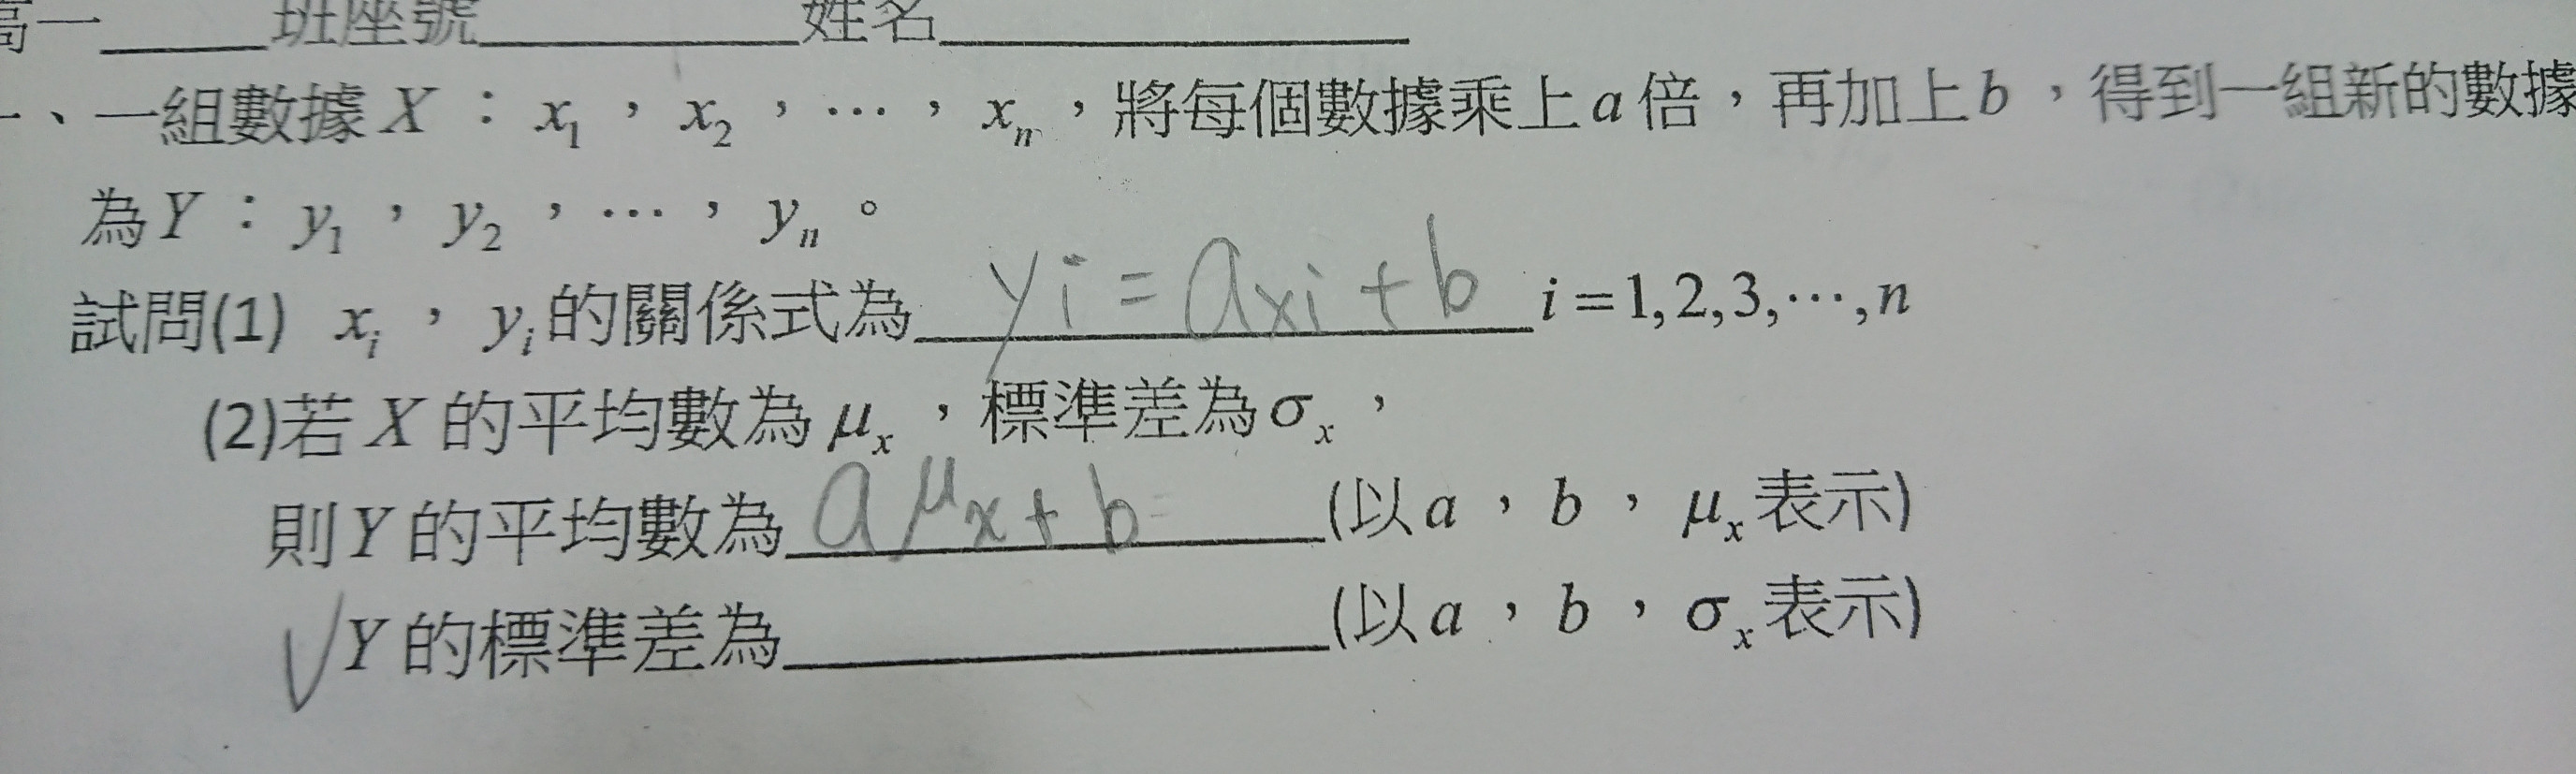 高一______班座號__________姓名______________
一、一組數據 X：x₁，x₂，⋯，xₙ，將每個數據乘上a倍，再加上b，得到一組新的數據
為Y：y₁，y₂，⋯，yₙ。
試問(1) xᵢ，yᵢ的關係式為 yi = axi + b i=1,2,3,⋯,n
(2)若 X 的平均數為 μₓ，標準差為σₓ，
則Y 的平均數為 aμx + b (以a，b，μₓ表示)
√ Y 的標準差為______________(以a，b，σₓ表示)